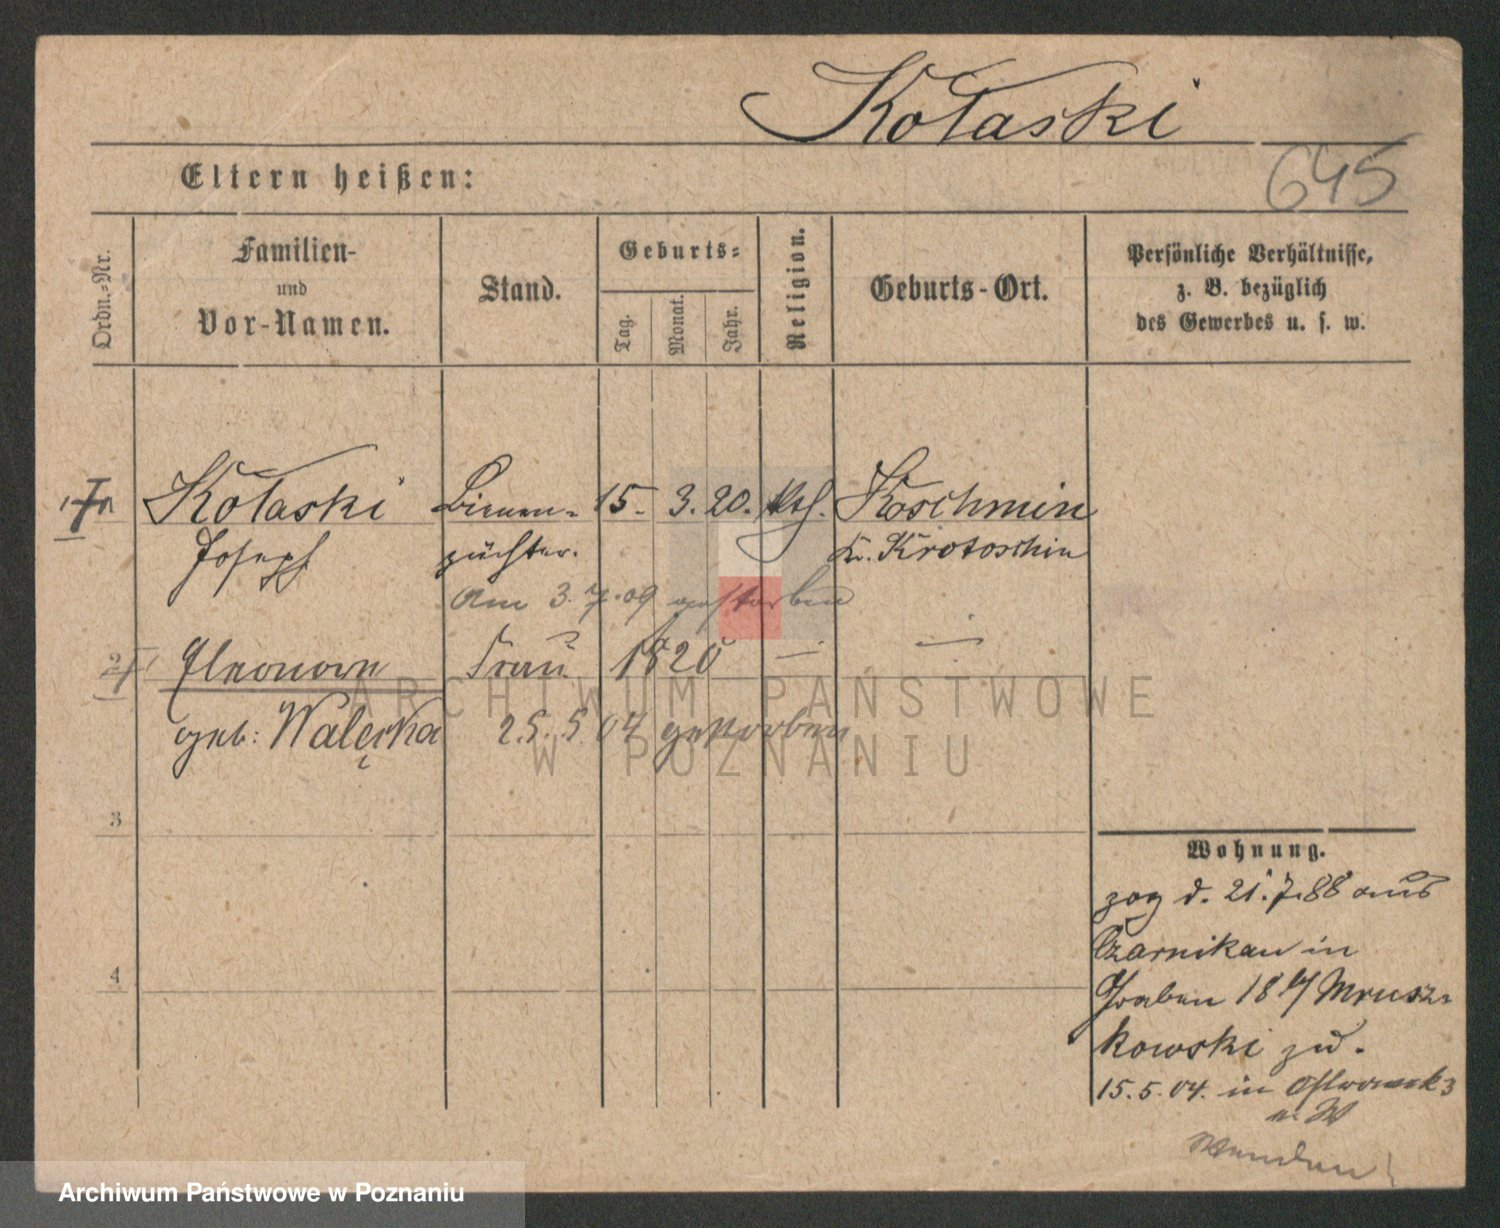 Kołaski
645
Eltern heißen:
Ordn.-Nr.
Familien-
und
Vor-Namen.
Stand.
Geburts-
Tag.
Monat.
Jahr.
Religion.
Geburts-Ort.
Persönliche Verhältnisse,
z. B. bezüglich
des Gewerbes u. s. w.
Kołaski Bienen- 15. 3. 20. kth. Koschmin
Joseph züchter. Kr. Krotoschin
Am 3. 7. 09 gestorben
2 Eleonore Frau 1820 — —
geb: Walęcka 25. 5. 04 gestorben
3
4
Wohnung.
zog d. 21. 7. 88 aus
Czarnikau in
Graben 18 Mrusz-
kowski zu.
15. 5. 04. in 3
Wenden!
ARCHIWUM PAŃSTWOWE
W POZNANIU
Archiwum Państwowe w Poznaniu